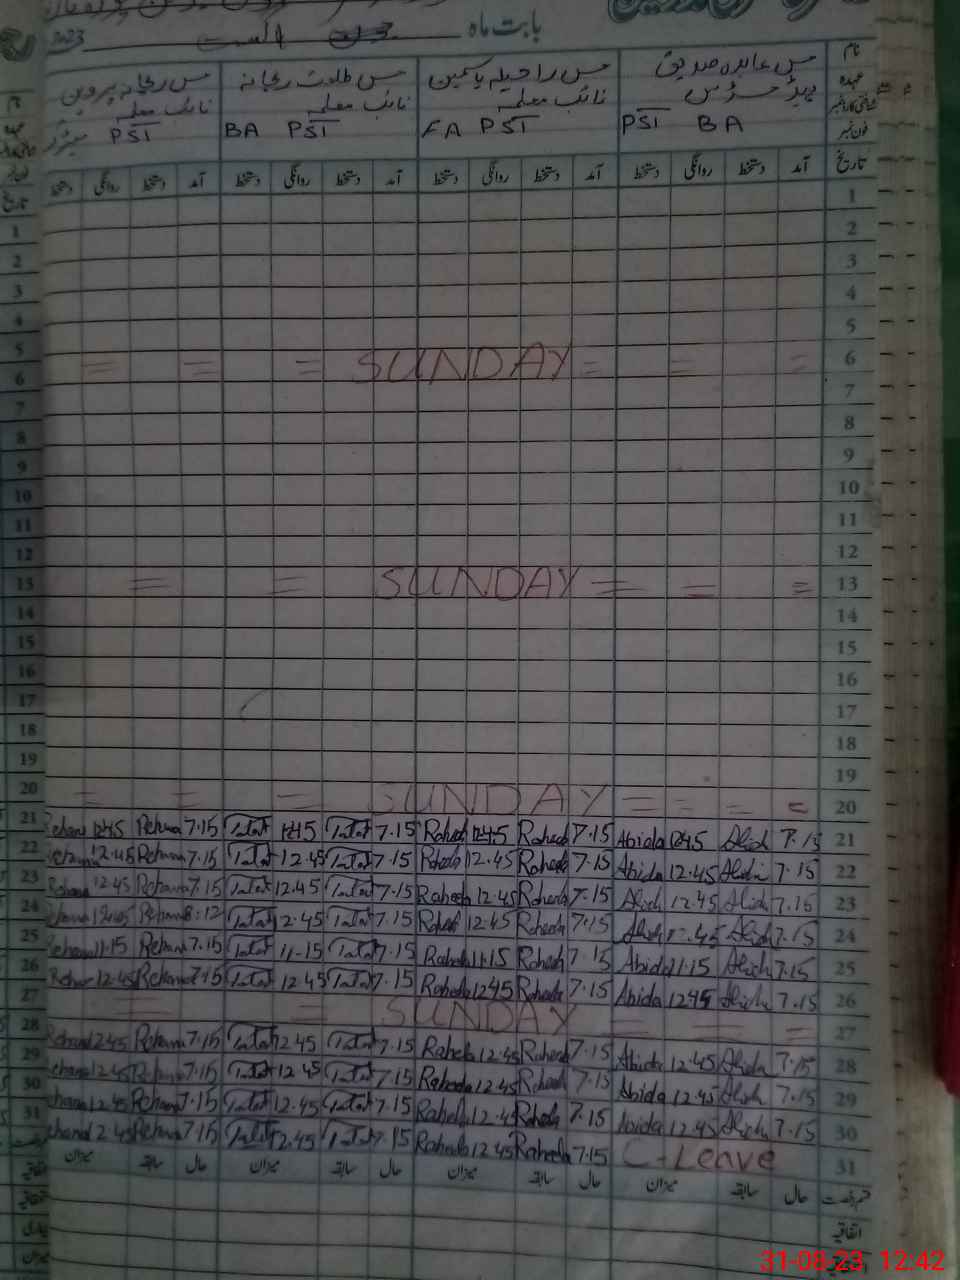 بابت ماہ اگست 2023
نام مس عابدہ صدیق مس راحیلہ یاسمین مس طلعت ریحانہ مس ریحانہ پروین
عہدہ ہیڈ مسٹرس نائب معلمہ نائب معلمہ نائب معلمہ
فون نمبر PST BA FA PST BA PST PST
تاریخ آمد دستخط روانگی دستخط آمد دستخط روانگی دستخط آمد دستخط روانگی دستخط آمد دستخط روانگی دستخط تاریخ
1 1
2 2
3 3
4 4
5 5
6 = = = SUNDAY = = = 6
7 7
8 8
9 9
10 10
11 11
12 12
13 = = SUNDAY = = = 13
14 14
15 15
16 16
17 17
18 18
19 19
20 = = = SUNDAY = = = = 20
21 Rehana 12.45 Rehana 7.15 Talat 12.45 Talat 7.15 Raheela 12.45 Raheela 7.15 Abida 12.45 Abida 7.15 21
22 Rehana 12.45 Rehana 7.15 Talat 12.45 Talat 7.15 Raheela 12.45 Raheela 7.15 Abida 12.45 Abida 7.15 22
23 Rehana 12.45 Rehana 7.15 Talat 12.45 Talat 7.15 Raheela 12.45 Raheela 7.15 Abida 12.45 Abida 7.15 23
24 Rehana 12.45 Rehana 8:12 Talat 12.45 Talat 7.15 Raheela 12.45 Raheela 7.15 Abida 12.45 Abida 7.15 24
25 Rehana 11.15 Rehana 7.15 Talat 11-15 Talat 7.15 Raheela 11.15 Raheela 7.15 Abida 11.15 Abida 7.15 25
26 Rehana 12.45 Rehana 7.15 Talat 12.45 Talat 7.15 Raheela 12.45 Raheela 7.15 Abida 12.45 Abida 7.15 26
27 = = SUNDAY = = = 27
28 Rehana 12.45 Rehana 7.15 Talat 12.45 Talat 7.15 Raheela 12.45 Raheela 7.15 Abida 12.45 Abida 7.15 28
29 Rehana 12.45 Rehana 7.15 Talat 12.45 Talat 7.15 Raheela 12.45 Raheela 7.15 Abida 12.45 Abida 7.15 29
30 Rehana 12.45 Rehana 7.15 Talat 12.45 Talat 7.15 Raheela 12.45 Raheela 7.15 Abida 12.45 Abida 7.15 30
31 Rehana 12.45 Rehana 7.15 Talat 12.45 Talat 7.15 Raheela 12.45 Raheela 7.15 C-Leave 31
قسم رخصت حال سابقہ میزان حال سابقہ میزان حال سابقہ میزان حال سابقہ میزان
اتفاقیہ
31-08-23, 12:42